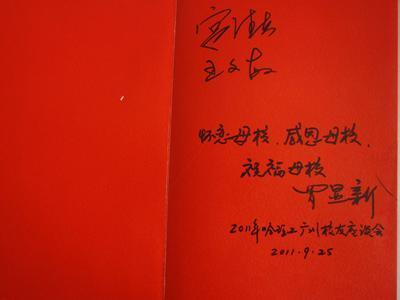 王文敬
怀念母校、感恩母校、
祝福母校
2011年哈理工广州校友座谈会
2011.9.25